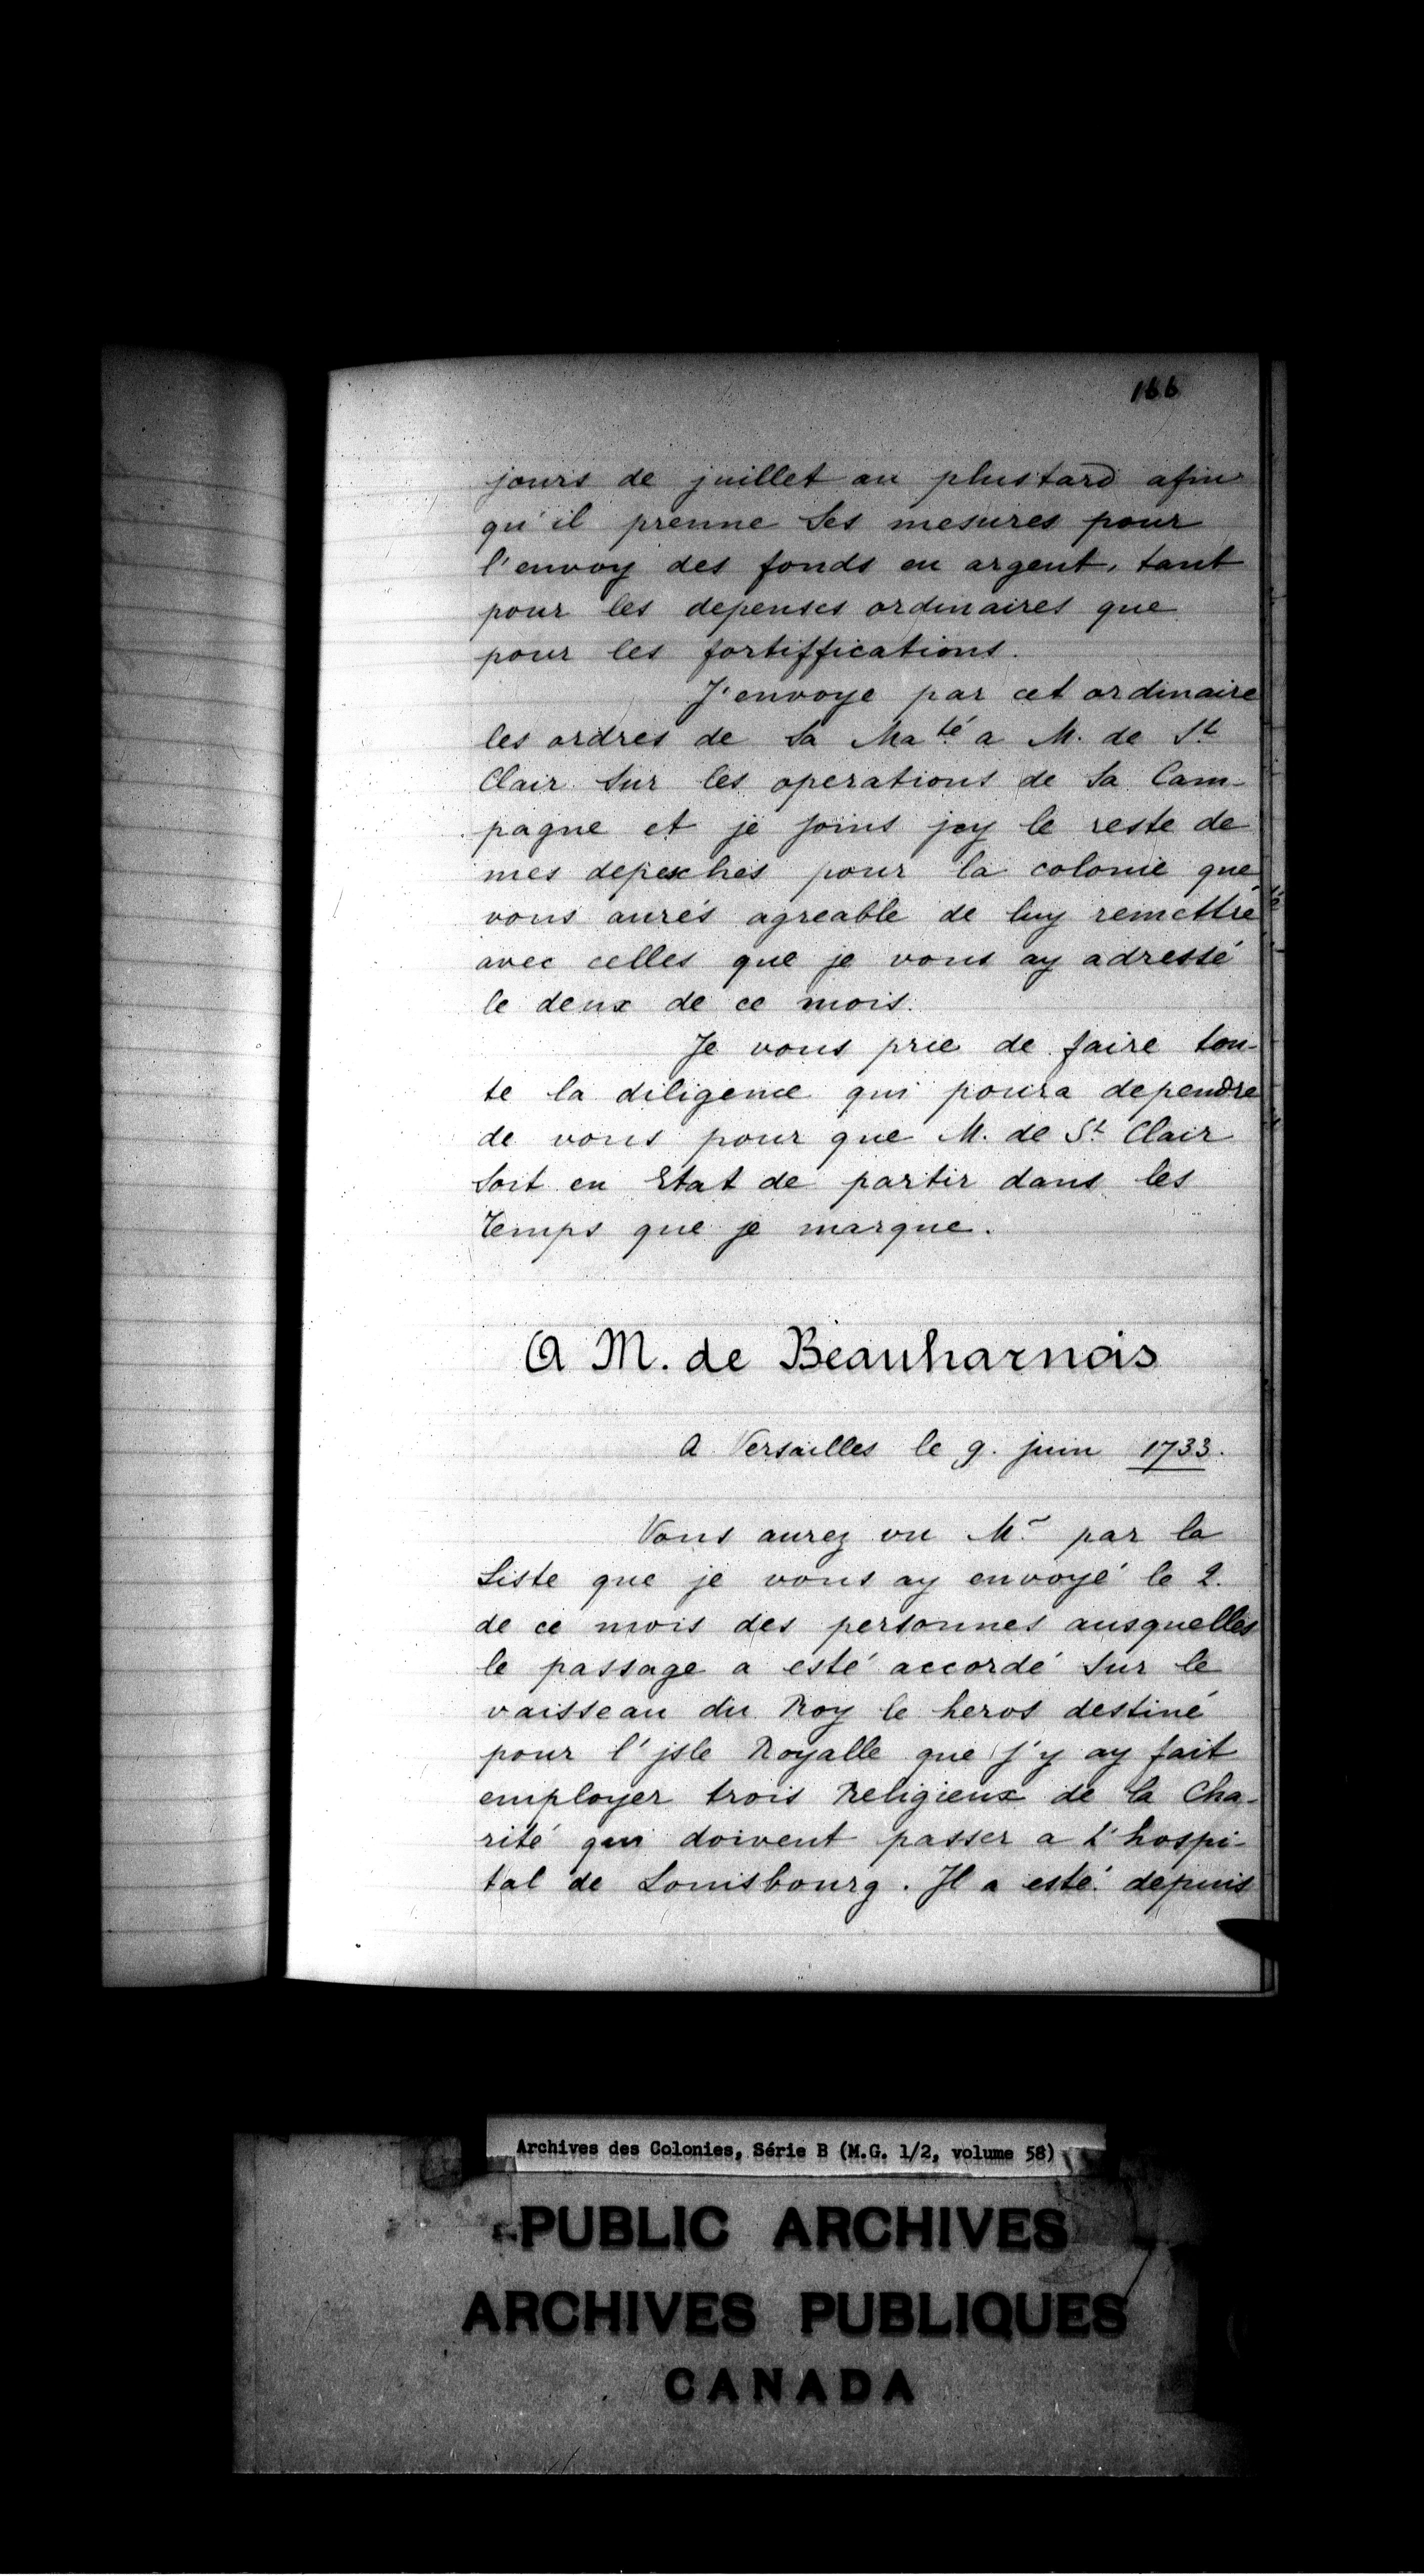 166
jours de juillet au plustard afin
qu'il prenne Ses mesures pour
l'envoy des fonds en argent, tant
pour les depenses ordinaires que
pour les fortiffications.
J'envoye par cet ordinaire
les ordres de Sa Ma.té a M. de St
Clair Sur les operations de Sa Cam-
pagne et je joins jcy le reste de
mes depesches pour la colonie que
vous aurés agreable de luy remettre
avec celles que je vous ay adressé
le deux de ce mois.
Je vous prie de faire tou-
te la diligence qui poura dependre
de vous pour que M. de St Clair
Soit en Etat de partir dans les
temps que je marque.
A M. de Beauharnois
A Versailles le 9. juin 1733.
Vous aurez vu Mr par la
Liste que je vous ay envoyé le 2.
de ce mois des personnes ausquelles
le passage a esté accordé Sur le
vaisseau du Roy le heros destiné
pour l'jsle Royalle que j'y ay fait
employer trois Religieux de la Cha-
rité qui doivent passer a L'hospi-
tal de Louisbourg. Jl a esté depuis
Archives des Colonies, Série B (M.G. 1/2, volume 58)
PUBLIC ARCHIVES
ARCHIVES PUBLIQUES
CANADA